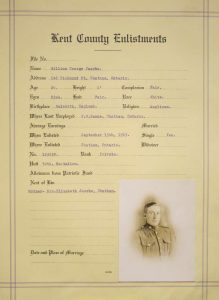 Kent County Enlistments
File No.
Name William George Jacobs.
Address 146 Richmond St. Chatham, Ontario.
Age Height 5' Complexion Fair.
Eyes Blue. Hair Fair. Race White.
Birthplace England. Religion Anglican.
Where Last Employed Chatham, Ontario.
Average Earnings Married
When Enlisted September 15th, Single Yes.
Where Enlisted Chatham, Ontario. Widower
No. Rank Private.
Unit Battalion.
Allotment from Patriotic Fund
Next of Kin
Mother- Mrs. Elizabeth Jacobs, Chatham.
Date and Place of Marriage